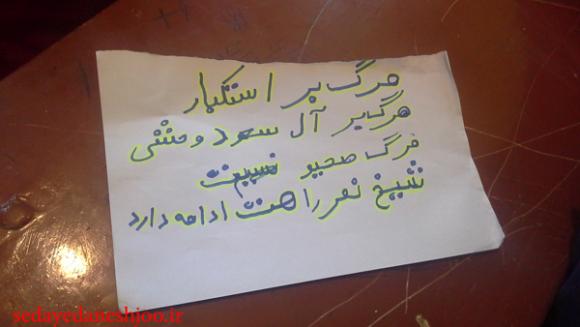 مرگ بر استکبار
مرگ بر آل سعود وحشی
مرگ صحیو نسیت
شیخ نمر راهت ادامه دارد
sedayedaneshjoo.ir